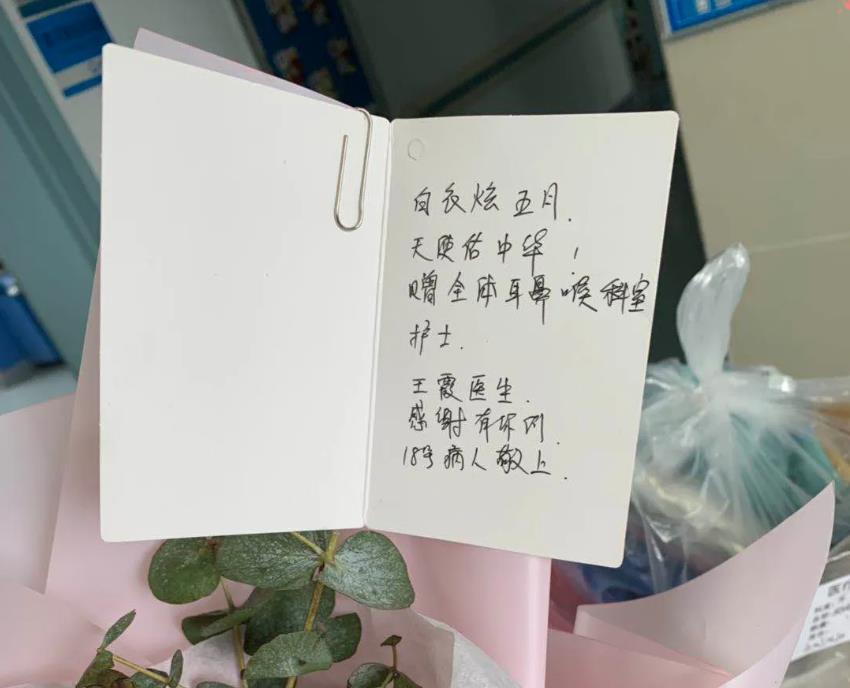 白衣炫五月.
天使佑中华,
赠全体耳鼻喉科室
护士.
王霞医生.
感谢有你们.
18号病人敬上.
医疗